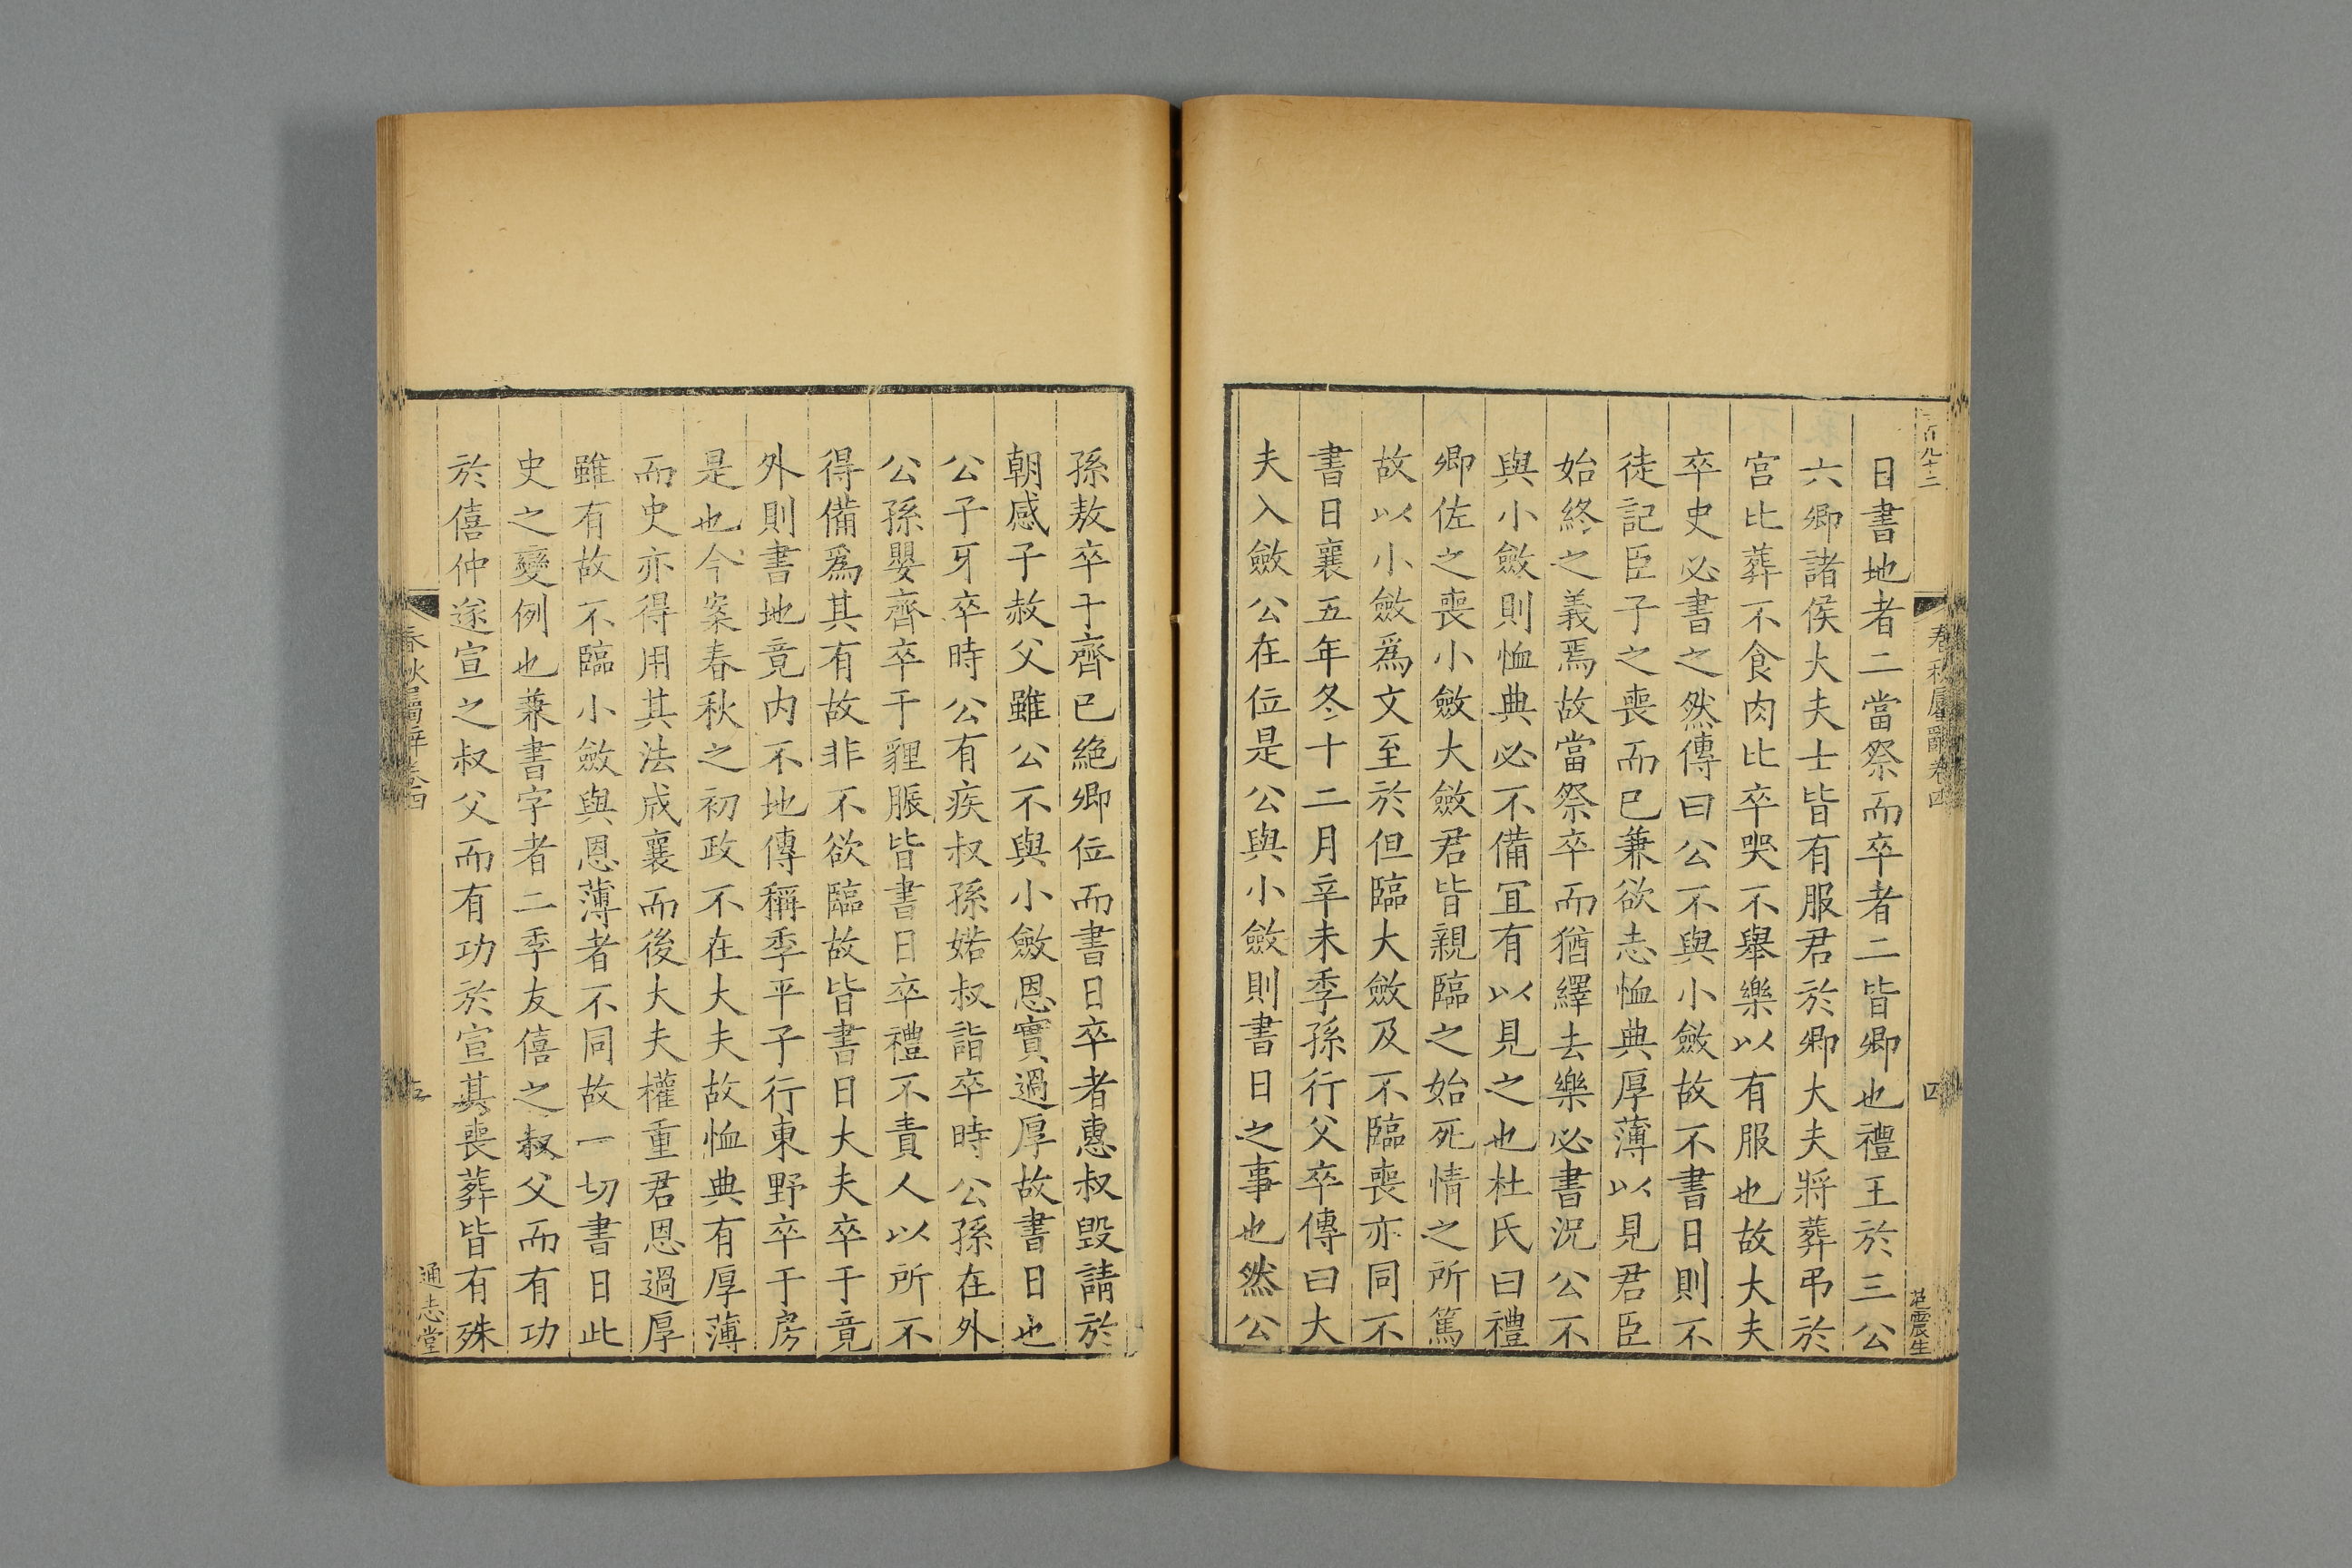 百九十二
春秋屬辭卷四
四
范震生
日書地者二當祭而卒者二皆卿也禮王於三公
六卿諸侯大夫士皆有服君於卿大夫將葬弔於
宮比葬不食肉比卒哭不舉樂以有服也故大夫
卒史必書之然傳曰公不與小斂故不書日則不
徒記臣子之喪而已兼欲志恤典厚薄以見君臣
始終之義焉故當祭卒而猶繹去樂必書況公不
與小斂則恤典必不備冝有以見之也杜氏曰禮
卿佐之喪小斂大斂君皆親臨之始死情之所篤
故以小斂爲文至於但臨大斂及不臨喪亦同不
書日襄五年冬十二月辛未季孫行父卒傳曰大
夫入斂公在位是公與小斂則書日之事也然公
孫敖卒于齊已絶卿位而書日卒者惠叔毀請於
朝感子赦父雖公不與小斂恩實過厚故書日也
公子牙卒時公有疾叔孫婼叔詣卒時公孫在外
公孫嬰齊卒于貍脤皆書日卒禮不責人以所不
得備爲其有故非不欲臨故皆書日大夫卒于竟
外則書地竟内不地傳稱季平子行東野卒于房
是也今案春秋之初政不在大夫故恤典有厚薄
而史亦得用其法成襄而後大夫權重君恩過厚
雖有故不臨小斂與恩薄者不同故一切書日此
史之變例也兼書字者二季友僖之叔父而有功
於僖仲遂宣之叔父而有功於宣其喪葬皆有殊
春秋屬辭卷四
五
通志堂